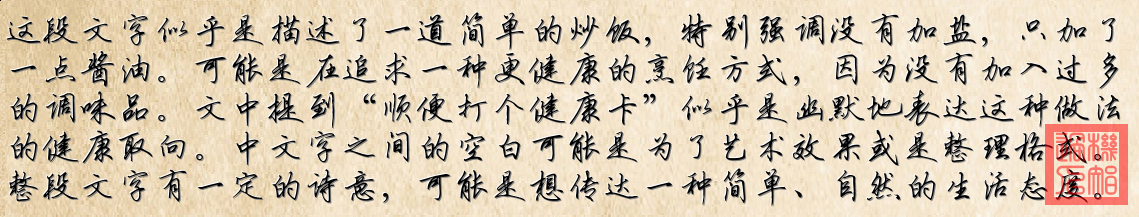 这段文字似乎是描述了一道简单的炒饭，特别强调没有加盐，只加了
一点酱油。可能是在追求一种更健康的烹饪方式，因为没有加入过多
的调味品。文中提到“顺便打个健康卡”似乎是幽默地表达这种做法
的健康取向。中文字之间的空白可能是为了艺术效果或是整理格式。
整段文字有一定的诗意，可能是想传达一种简单、自然的生活态度。